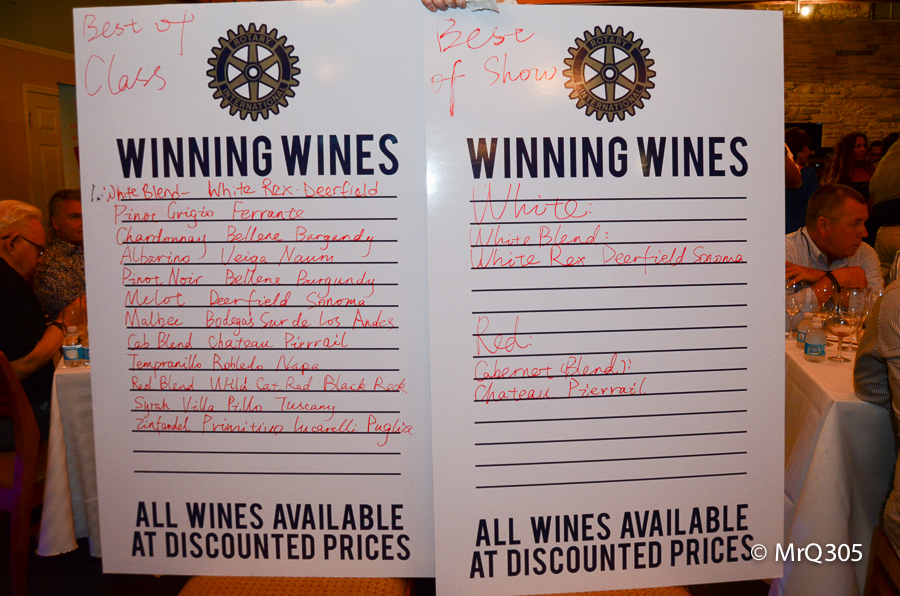 Best of
Class
ROTARY
INTERNATIONAL
WINNING WINES
1. White Blend - White Rex - Deerfield
Pinot Grigio Ferrante
Chardonnay Bellene Burgundy
Albarino Veiga Naum
Pinot Noir Bellene Burgundy
Melot Deerfield Sonoma
Malbec Bodegas Sur de Los Andes
Cab Blend Chateau Pierrail
Tempranillo Robledo Napa
Red Blend Wild Cat Red Black Rock
Syrah Villa Pillo Tuscany
Zinfandel Primitivo Lucarelli Puglia
ALL WINES AVAILABLE
AT DISCOUNTED PRICES
Best
of Show
ROTARY
INTERNATIONAL
WINNING WINES
White:
White Blend:
White Rex Deerfield Sonoma
Red:
Cabernet (Blend):
Chateau Pierrail
ALL WINES AVAILABLE
AT DISCOUNTED PRICES
© MrQ305